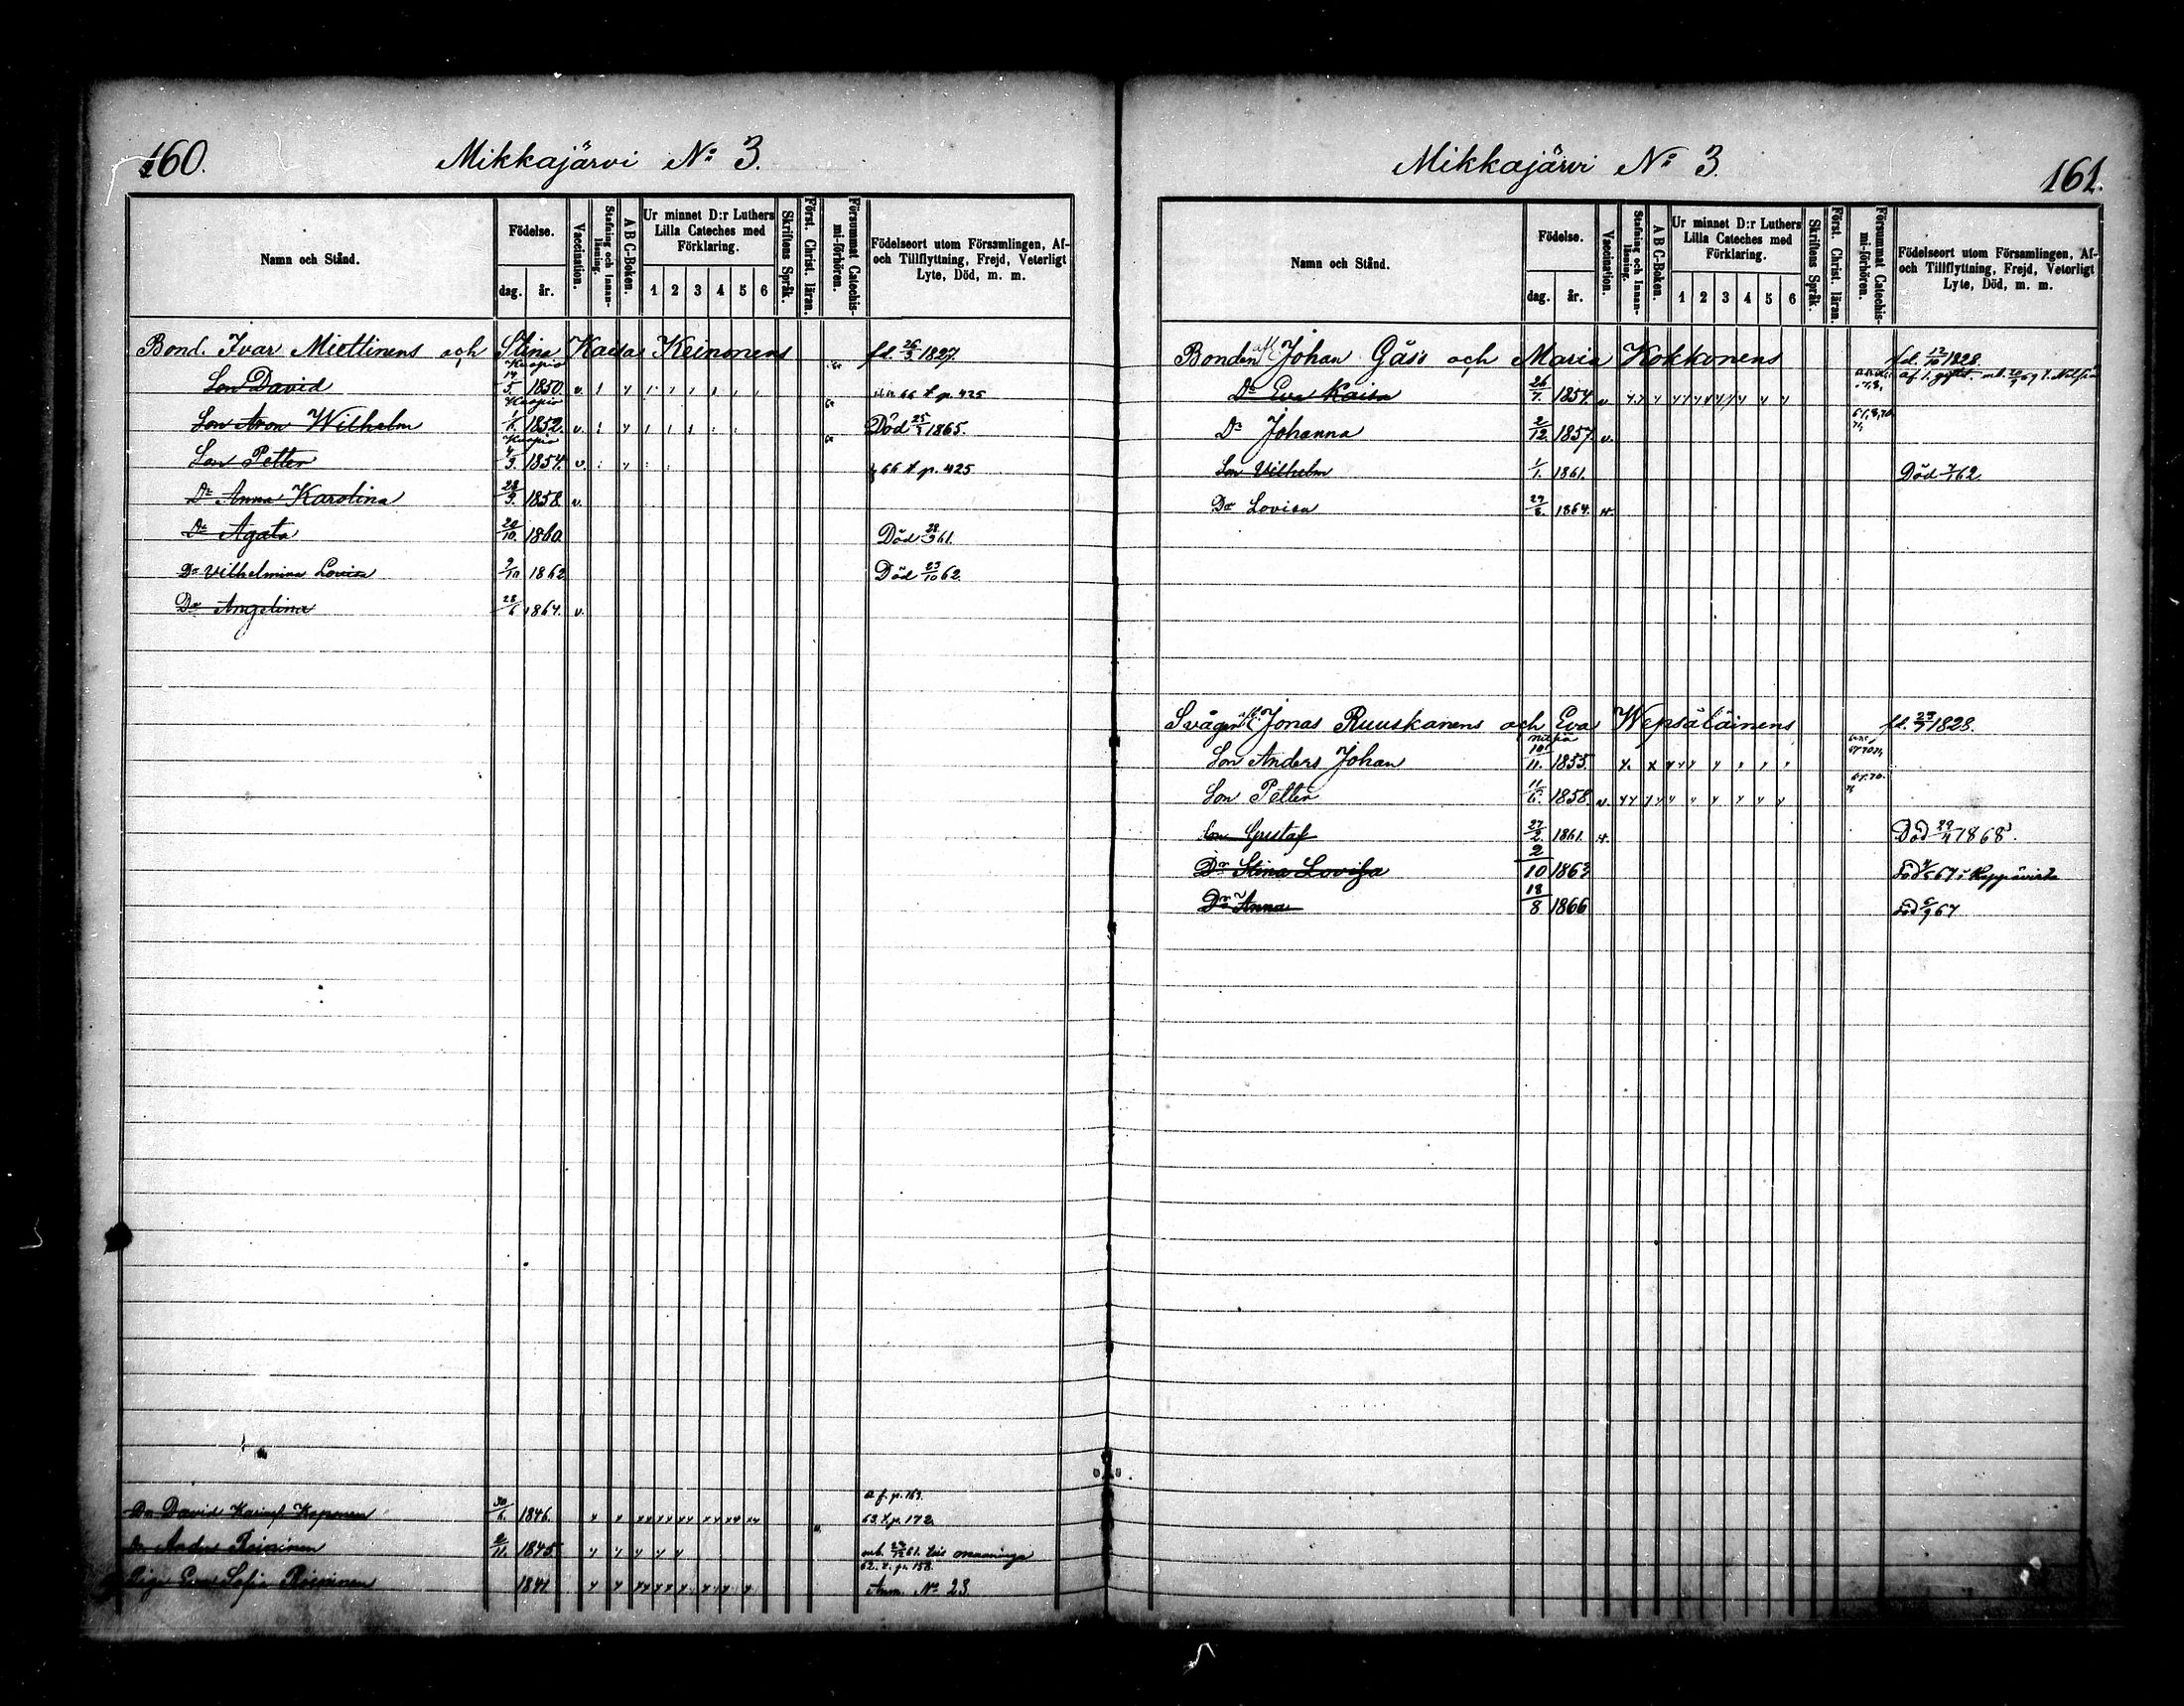 160.
Mikkajärvi No 3.
Namn och Stånd.
Födelse.
dag.
år.
Vaccination.
Stafning och Innan-läsning.
A B C-Boken.
Ur minnet D:r Luthers Lilla Cateches med Förklaring.
1 2 3 4 5 6
Skriftens Språk.
Först. Christ. läran.
Försummat Catechis-mi-förhören.
Födelseort utom Församlingen, Af- och Tillflyttning, Frejd, Veterligt Lyte, Död, m. m.
Bond. Ivar Miettinens och Stina Kaisa Keinonens fd. 26/3 1827.
Kuopio
Son David 14/5 1850. v. 66 t. p. 425
Kuopio
Son Aron Wilhelm 1/6. 1852. v. Död 25/5 1865.
Kuopio
Son Petter 4/3. 1854. v. 66 t. p. 425
Dr Anna Karolina 28/3. 1858. v.
Dr Agata 20/10. 1860. Död 28/3 61.
Dr Vilhelmina Lovisa 9/10 1862 Död 23/10 62.
Dr Angelina 28/6 1864. v.
a f. p. 163.
Dr David Koponen 30/6. 1846. 63. t. p. 172.
Dr Anders Roininen 2/11. 1845.
62. t. p. 158.
Piga Eva Sofia Roininen 1841 Anm. No 23.
Mikkajärvi No 3.
161.
Namn och Stånd.
Födelse.
dag.
år.
Vaccination.
Stafning och Innan-läsning.
A B C-Boken.
Ur minnet D:r Luthers Lilla Cateches med Förklaring.
1 2 3 4 5 6
Skriftens Språk.
Först. Christ. läran.
Försummat Catechis-mi-förhören.
Födelseort utom Församlingen, Af- och Tillflyttning, Frejd, Veterligt Lyte, Död, m. m.
Bonden afl. Johan Gåss och Maria Kokkonens fd. 12/10 1828
Dr Eva Kaisa 26/7. 1854. v
Dr Johanna 2/12. 1857. v.
Son Vilhelm 1/1. 1861. Död 62.
Dr Lovisa 29/8. 1864. v.
Svågern afl. Jonas Ruuskanens och Eva Wepsäläinens fd. 1828.
Son Anders Johan 10/11. 1855.
Son Petter 11/6. 1858. v.
Son Gustaf 27/2. 1861. v. Död 29/4 1868.
Dr Stina Lovisa 2/10 1863 67 i
Dr Anna 18/8 1866 död 6/9 67